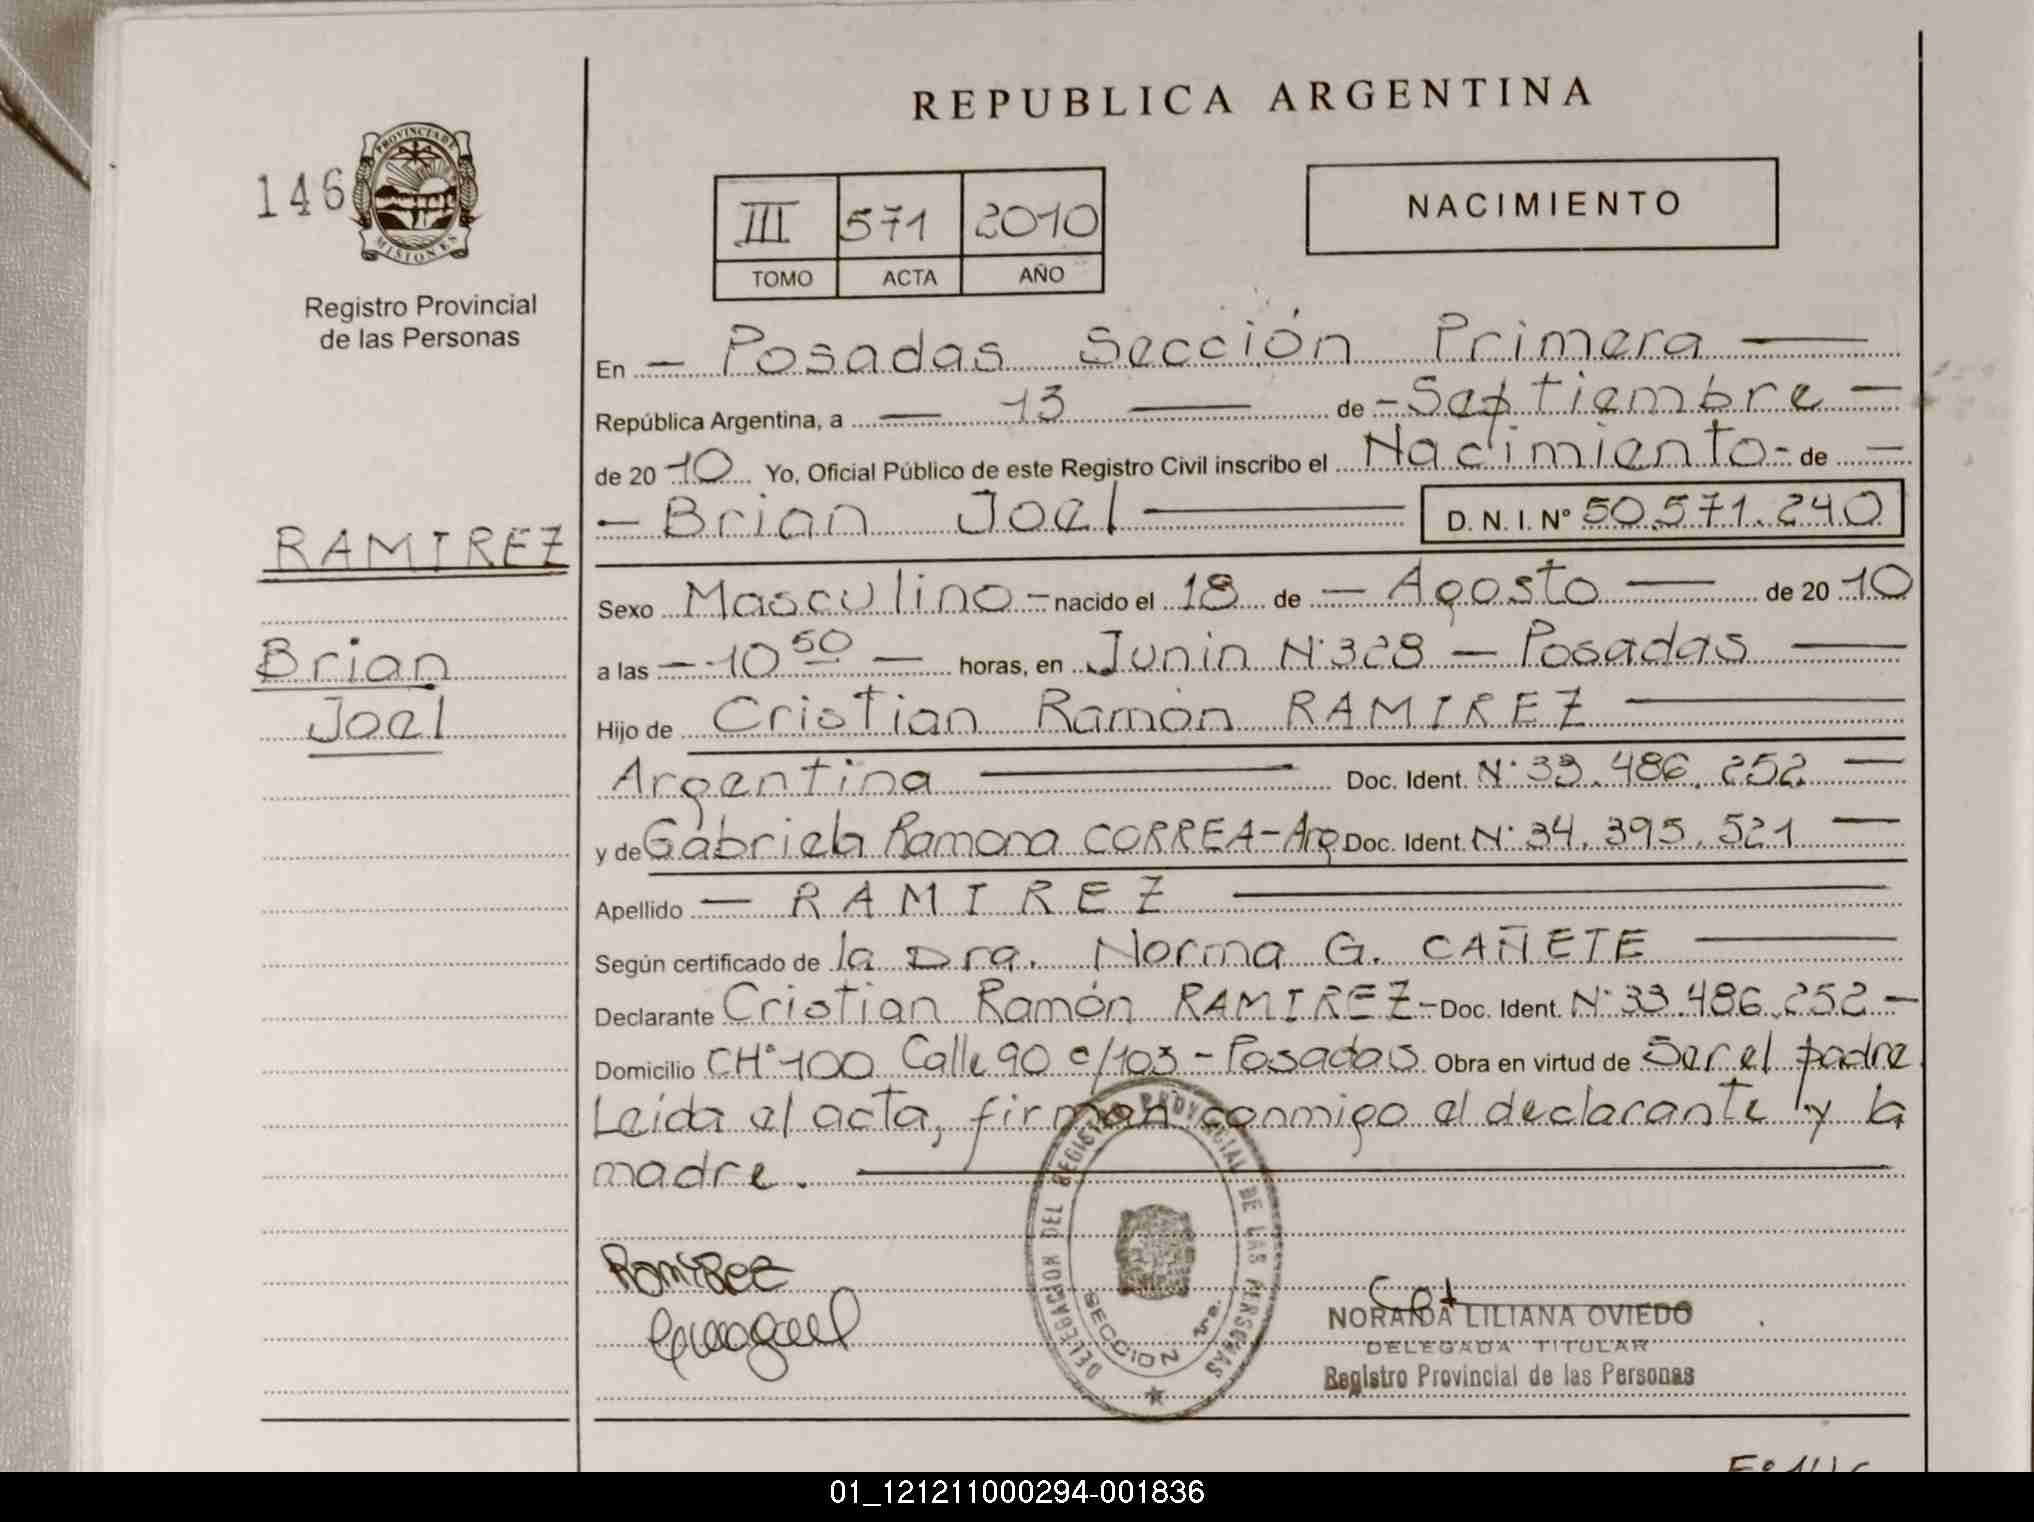 REPUBLICA ARGENTINA
146
PROVINCIA DE MISIONES
Registro Provincial
de las Personas
III 571 2010
TOMO ACTA AÑO
NACIMIENTO
En — Posadas Sección Primera —
República Argentina, a — 13 — de - Septiembre —
de 20 10 Yo, Oficial Público de este Registro Civil inscribo el Nacimiento - de —
— Brian Joel — D. N. I. N° 50.571.240
RAMIREZ
Brian
Joel
Sexo Masculino - nacido el 18 de — Agosto — de 20 10
a las — 10 50 — horas, en Junin N° 328 — Posadas —
Hijo de Cristian Ramón RAMIREZ —
Argentina — Doc. Ident. N° 33.486.252 —
y de Gabriela Ramona CORREA - Arg Doc. Ident. N° 34.395.521 —
Apellido — RAMIREZ —
Según certificado de la Dra. Norma G. CAÑETE —
Declarante Cristian Ramón RAMIREZ - Doc. Ident. N° 33.486.252 —
Domicilio CH° 100 Calle 90 c/103 - Posadas Obra en virtud de Ser el padre
Leída el acta, firman conmigo el declarante y la
madre. —
Ramirez
DELEGACION DEL REGISTRO PROVINCIAL DE LAS PERSONAS
SECCION 1ra.
NORAIDA LILIANA OVIEDO
DELEGADA TITULAR
Registro Provincial de las Personas
01_121211000294-001836